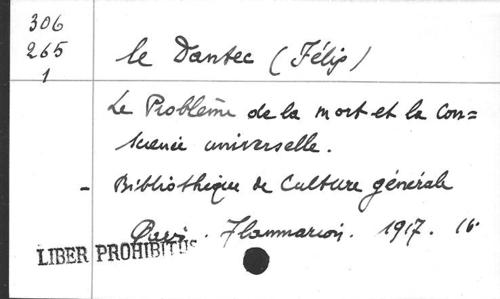 306
265
1
le Dantec (Félix)
Le Problème de la mort et la Con=
science universelle.
- Bibliothèque de Culture générale
Paris. Flammarion. 1917. 16°
LIBER PROHIBITUS